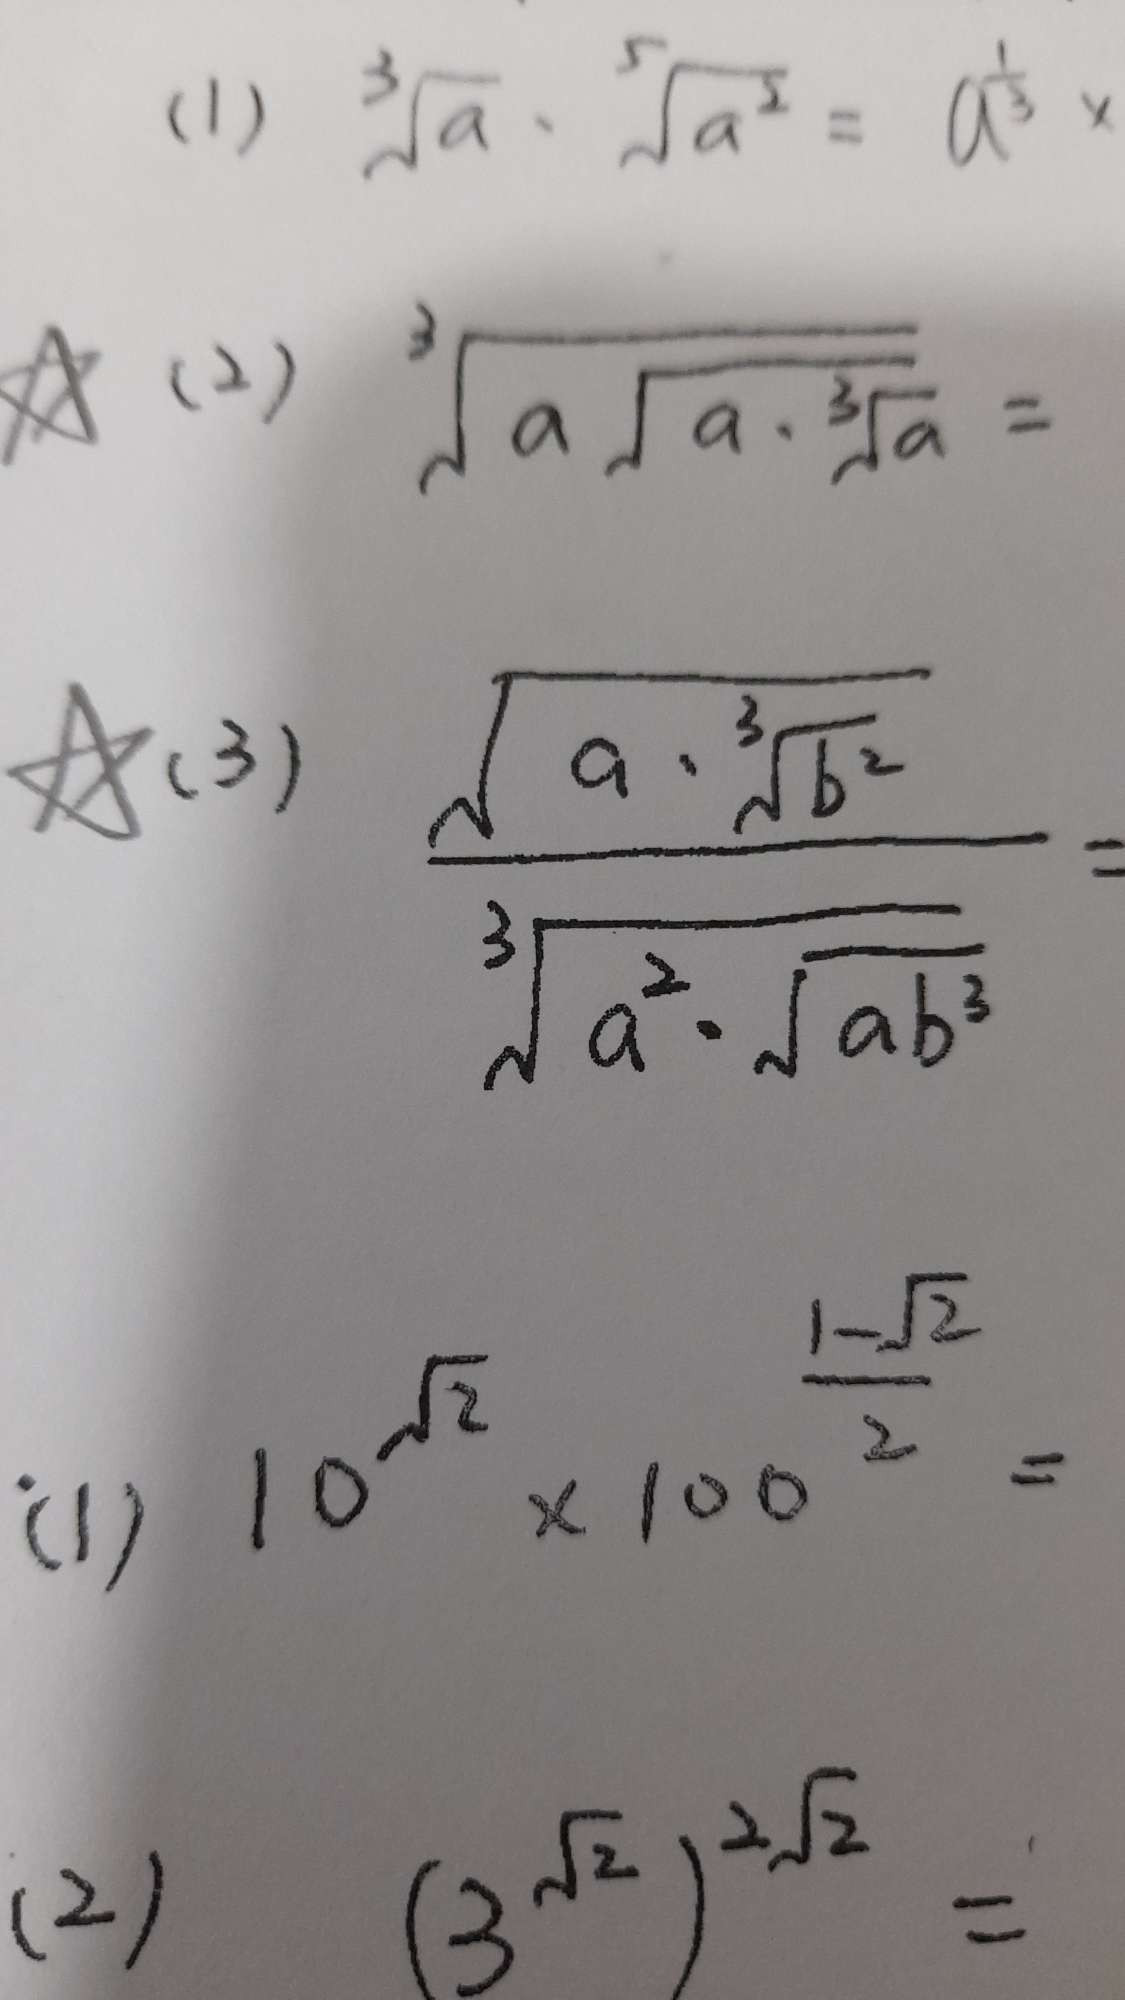 (1) ∛a · ⁵√(a²) = a^(1/3) ×
☆ (2) ∛(a√(a · ∛a)) =
☆ (3) √(a · ∛(b²)) / ∛(a² · √(ab³)) =
(1) 10^(√2) × 100^((1-√2)/2) =
(2) (3^(√2))^(2√2) =